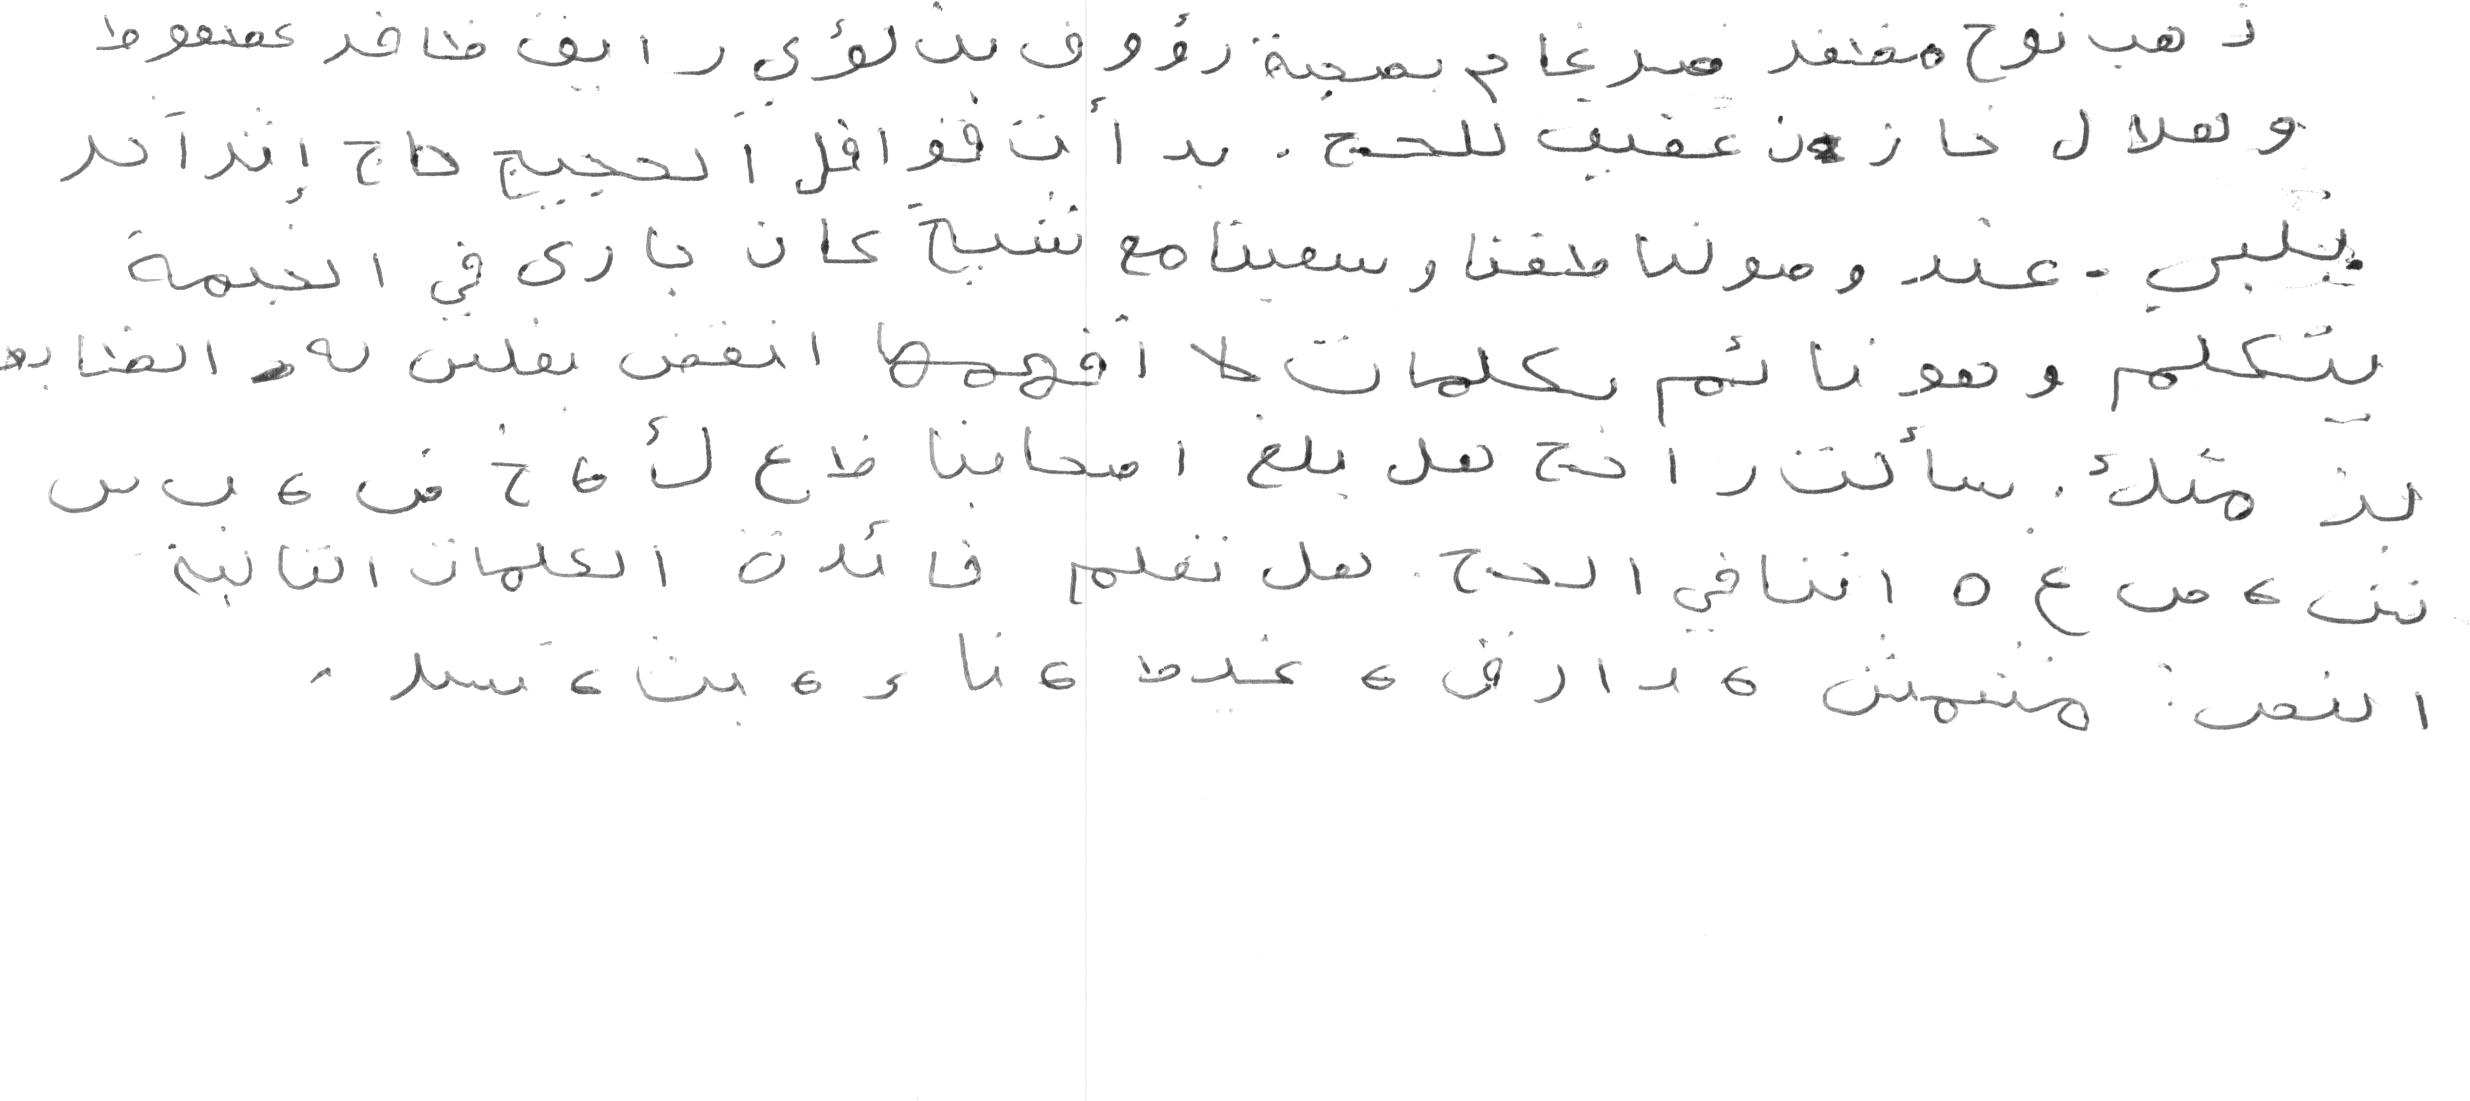 ذهب نوح مظفر ضرغام بصحبة رؤوف بن لؤي رايق ظافر عضفوط
وهلال خازن عفيف للحج. بدأت قوافل الحجيج حاج إثر آخر
يلبي. عند وصولنا طفنا وسعينا مع شيخ كان جاري في الخيمة
يتكلم وهو نائم بكلمات لا أفهمها انغض بغليس له الضابط
بذ مثلك. سألت راجح هل بلغ اصحابنا ظ ع ك ، خ ض ، ب س
ث ، ص ع ه اننا في الحج. هل تعلم فائدة الكلمات التالية
النص: مشمش ، دارق ، غيط ، نا ء ، بث ، تسد.